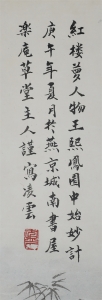 紅楼夢人物王熙鳳園中始妙計
庚午年夏月於燕京城南書屋
樂庵草堂主人謹寫凌雲